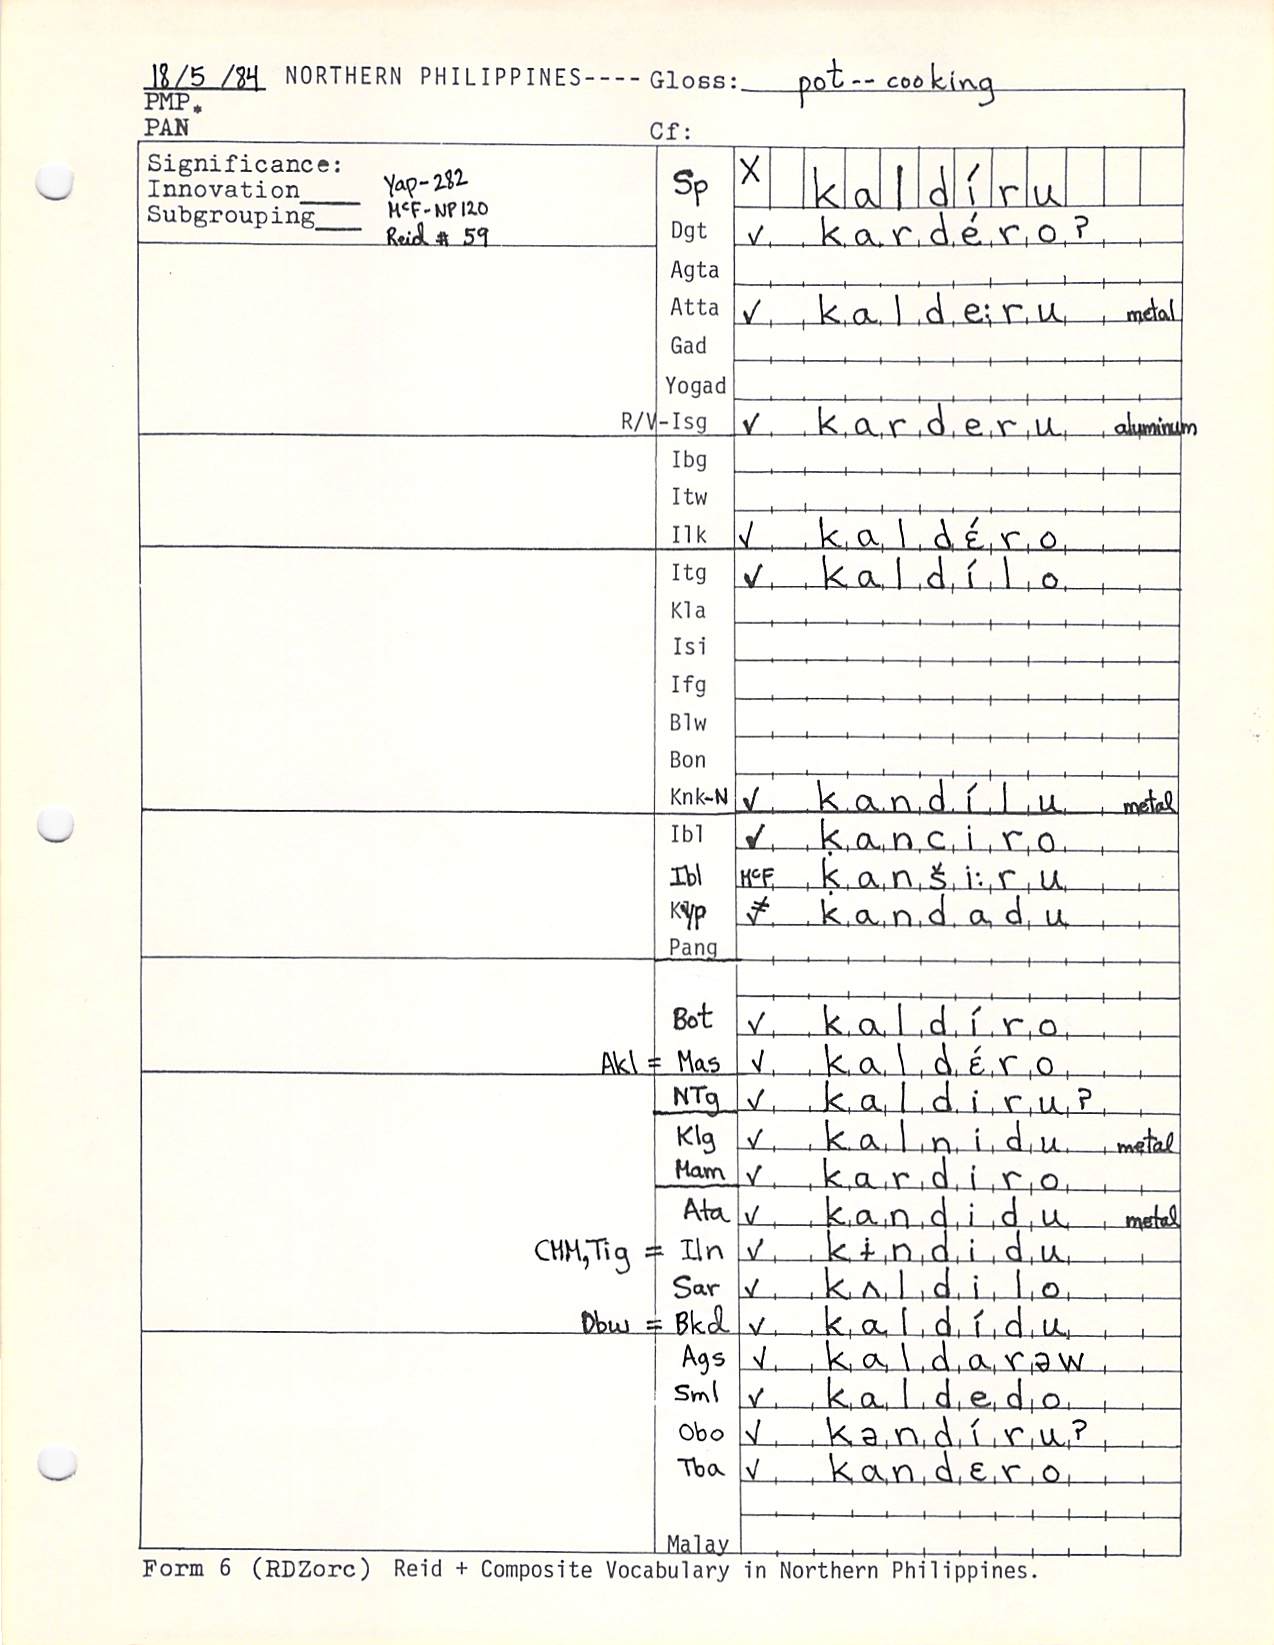 18/5/84 NORTHERN PHILIPPINES---- Gloss: pot -- cooking
PMP.
PAN Cf:
Significance:
Innovation____ Yap-282
McF-NP120
Subgrouping___ Reid # 59
Sp X kaldíru
Dgt ✓ kardéro?
Agta
Atta ✓ kalde:ru metal
Gad
Yogad
R/V-Isg ✓ karderu aluminum
Ibg
Itw
Ilk ✓ kaldɛ́ro
Itg ✓ kaldílo
Kla
Isi
Ifg
Blw
Bon
Knk-N ✓ kandílu metal
Ibl ✓ kanciro
Ibl McF ḳanši:ru
Kyp ≠ ḳandadu
Pang
Bot ✓ kaldíro
Akl = Mas ✓ kaldɛ́ro
NTg ✓ kaldiru?
Klg ✓ kalnidu metal
Mam ✓ kardiro
Ata ✓ kandidu metal
CMM,Tig = Iln ✓ kɨndidu
Sar ✓ kʌldilo
Dbw = Bkd ✓ kaldídu
Ags ✓ kaldarəw
Sml ✓ kaldedo
Obo ✓ kəndíru?
Tba ✓ kandɛro
Malay
Form 6 (RDZorc) Reid + Composite Vocabulary in Northern Philippines.